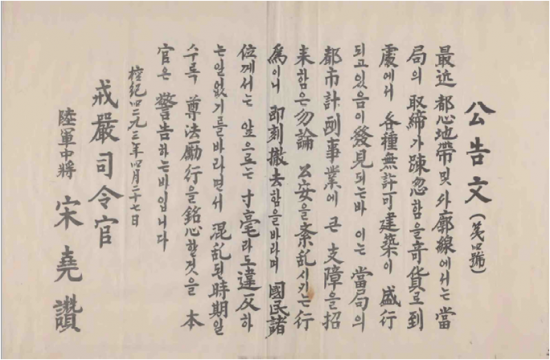 公告文 (第四號)
最近 都心地帶 및 外廓線에서는 當
局의 取締가 疎忽함을 奇貨로 到
處에서 各種無許可建築이 盛行
되고있음이 發見되는바 이는 當局의
都市計劃事業에 큰 支障을招
来함은勿論 公安을紊乱시키는行
為이니 即刻撤去함을바라며 國民諸
位께서는 앞으로는 寸毫라도違反하
는일없기를바라면서 混乱된時期일
수록 尊法勵行을銘心할것을 本
官은 警告하는바입니다
檀紀四二九三年四月二十七日
戒嚴司令官
陸軍中將 宋堯讚